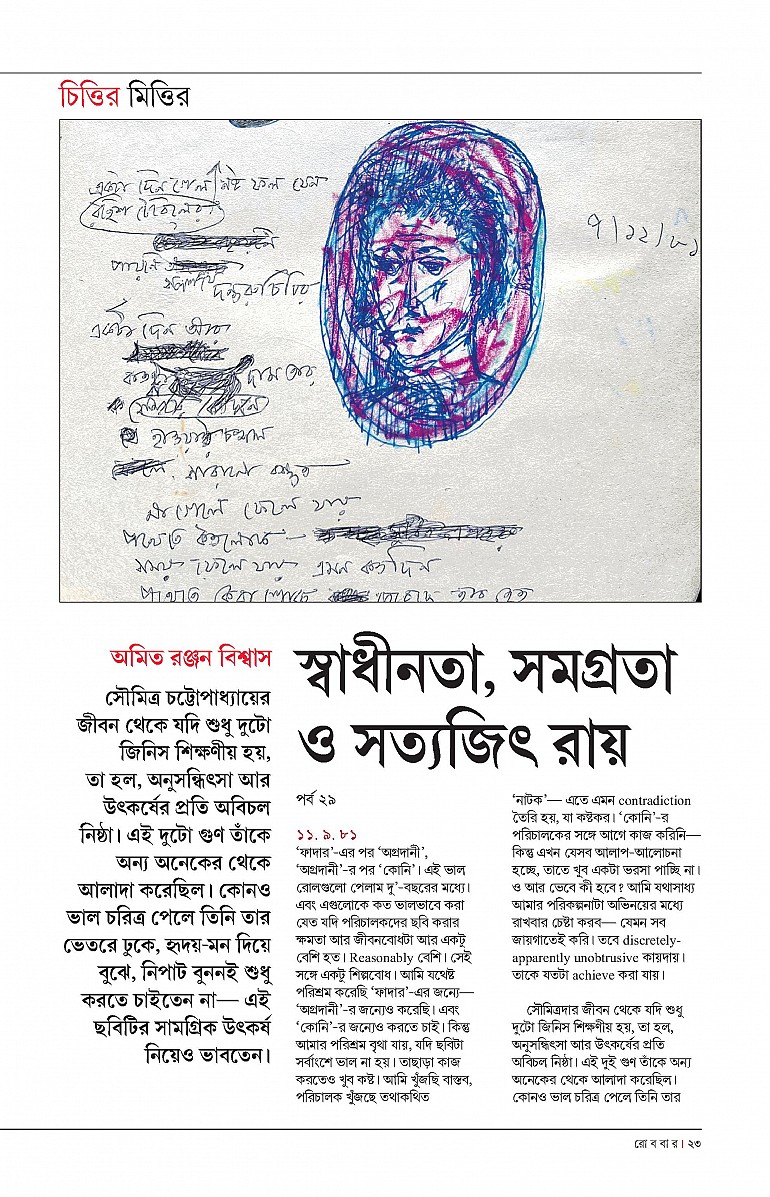 চিত্তির মিত্তির
একটা দিন গেল
৭/১২/৮১
একটা দিন
দাম তার
হাওয়ায় চঞ্চল
না গেলে ফেলে যায়
সময় ফেলে যায় এমন কত দিন
অমিত রঞ্জন বিশ্বাস
সৌমিত্র চট্টোপাধ্যায়ের
জীবন থেকে যদি শুধু দুটো
জিনিস শিক্ষণীয় হয়,
তা হল, অনুসন্ধিৎসা আর
উৎকর্ষের প্রতি অবিচল
নিষ্ঠা। এই দুটো গুণ তাঁকে
অন্য অনেকের থেকে
আলাদা করেছিল। কোনও
ভাল চরিত্র পেলে তিনি তার
ভেতরে ঢুকে, হৃদয়-মন দিয়ে
বুঝে, নিপাট বুননই শুধু
করতে চাইতেন না— এই
ছবিটির সামগ্রিক উৎকর্ষ
নিয়েও ভাবতেন।
স্বাধীনতা, সমগ্রতা
ও সত্যজিৎ রায়
পর্ব ২৯
১১. ৯. ৮১
‘ফাদার’-এর পর ‘অগ্রদানী’,
‘অগ্রদানী’-র পর ‘কোনি’। এই ভাল
রোলগুলো পেলাম দু’-বছরের মধ্যে।
এবং এগুলোকে কত ভালভাবে করা
যেত যদি পরিচালকদের ছবি করার
ক্ষমতা আর জীবনবোধটা আর একটু
বেশি হত। Reasonably বেশি। সেই
সঙ্গে একটু শিল্পবোধ। আমি যথেষ্ট
পরিশ্রম করেছি ‘ফাদার’-এর জন্যে—
‘অগ্রদানী’-র জন্যেও করেছি। এবং
‘কোনি’-র জন্যেও করতে চাই। কিন্তু
আমার পরিশ্রম বৃথা যায়, যদি ছবিটা
সর্বাংশে ভাল না হয়। তাছাড়া কাজ
করতেও খুব কষ্ট। আমি খুঁজছি বাস্তব,
পরিচালক খুঁজছে তথাকথিত
‘নাটক’— এতে এমন contradiction
তৈরি হয়, যা কষ্টকর। ‘কোনি’-র
পরিচালকের সঙ্গে আগে কাজ করিনি—
কিন্তু এখন যেসব আলাপ-আলোচনা
হচ্ছে, তাতে খুব একটা ভরসা পাচ্ছি না।
ও আর ভেবে কী হবে? আমি যথাসাধ্য
আমার পরিকল্পনাটা অভিনয়ের মধ্যে
রাখবার চেষ্টা করব— যেমন সব
জায়গাতেই করি। তবে discretely-
apparently unobtrusive কায়দায়।
তাকে যতটা achieve করা যায়।
সৌমিত্রদার জীবন থেকে যদি শুধু
দুটো জিনিস শিক্ষণীয় হয়, তা হল,
অনুসন্ধিৎসা আর উৎকর্ষের প্রতি
অবিচল নিষ্ঠা। এই দুই গুণ তাঁকে অন্য
অনেকের থেকে আলাদা করেছিল।
কোনও ভাল চরিত্র পেলে তিনি তার
রোববার। ২৩